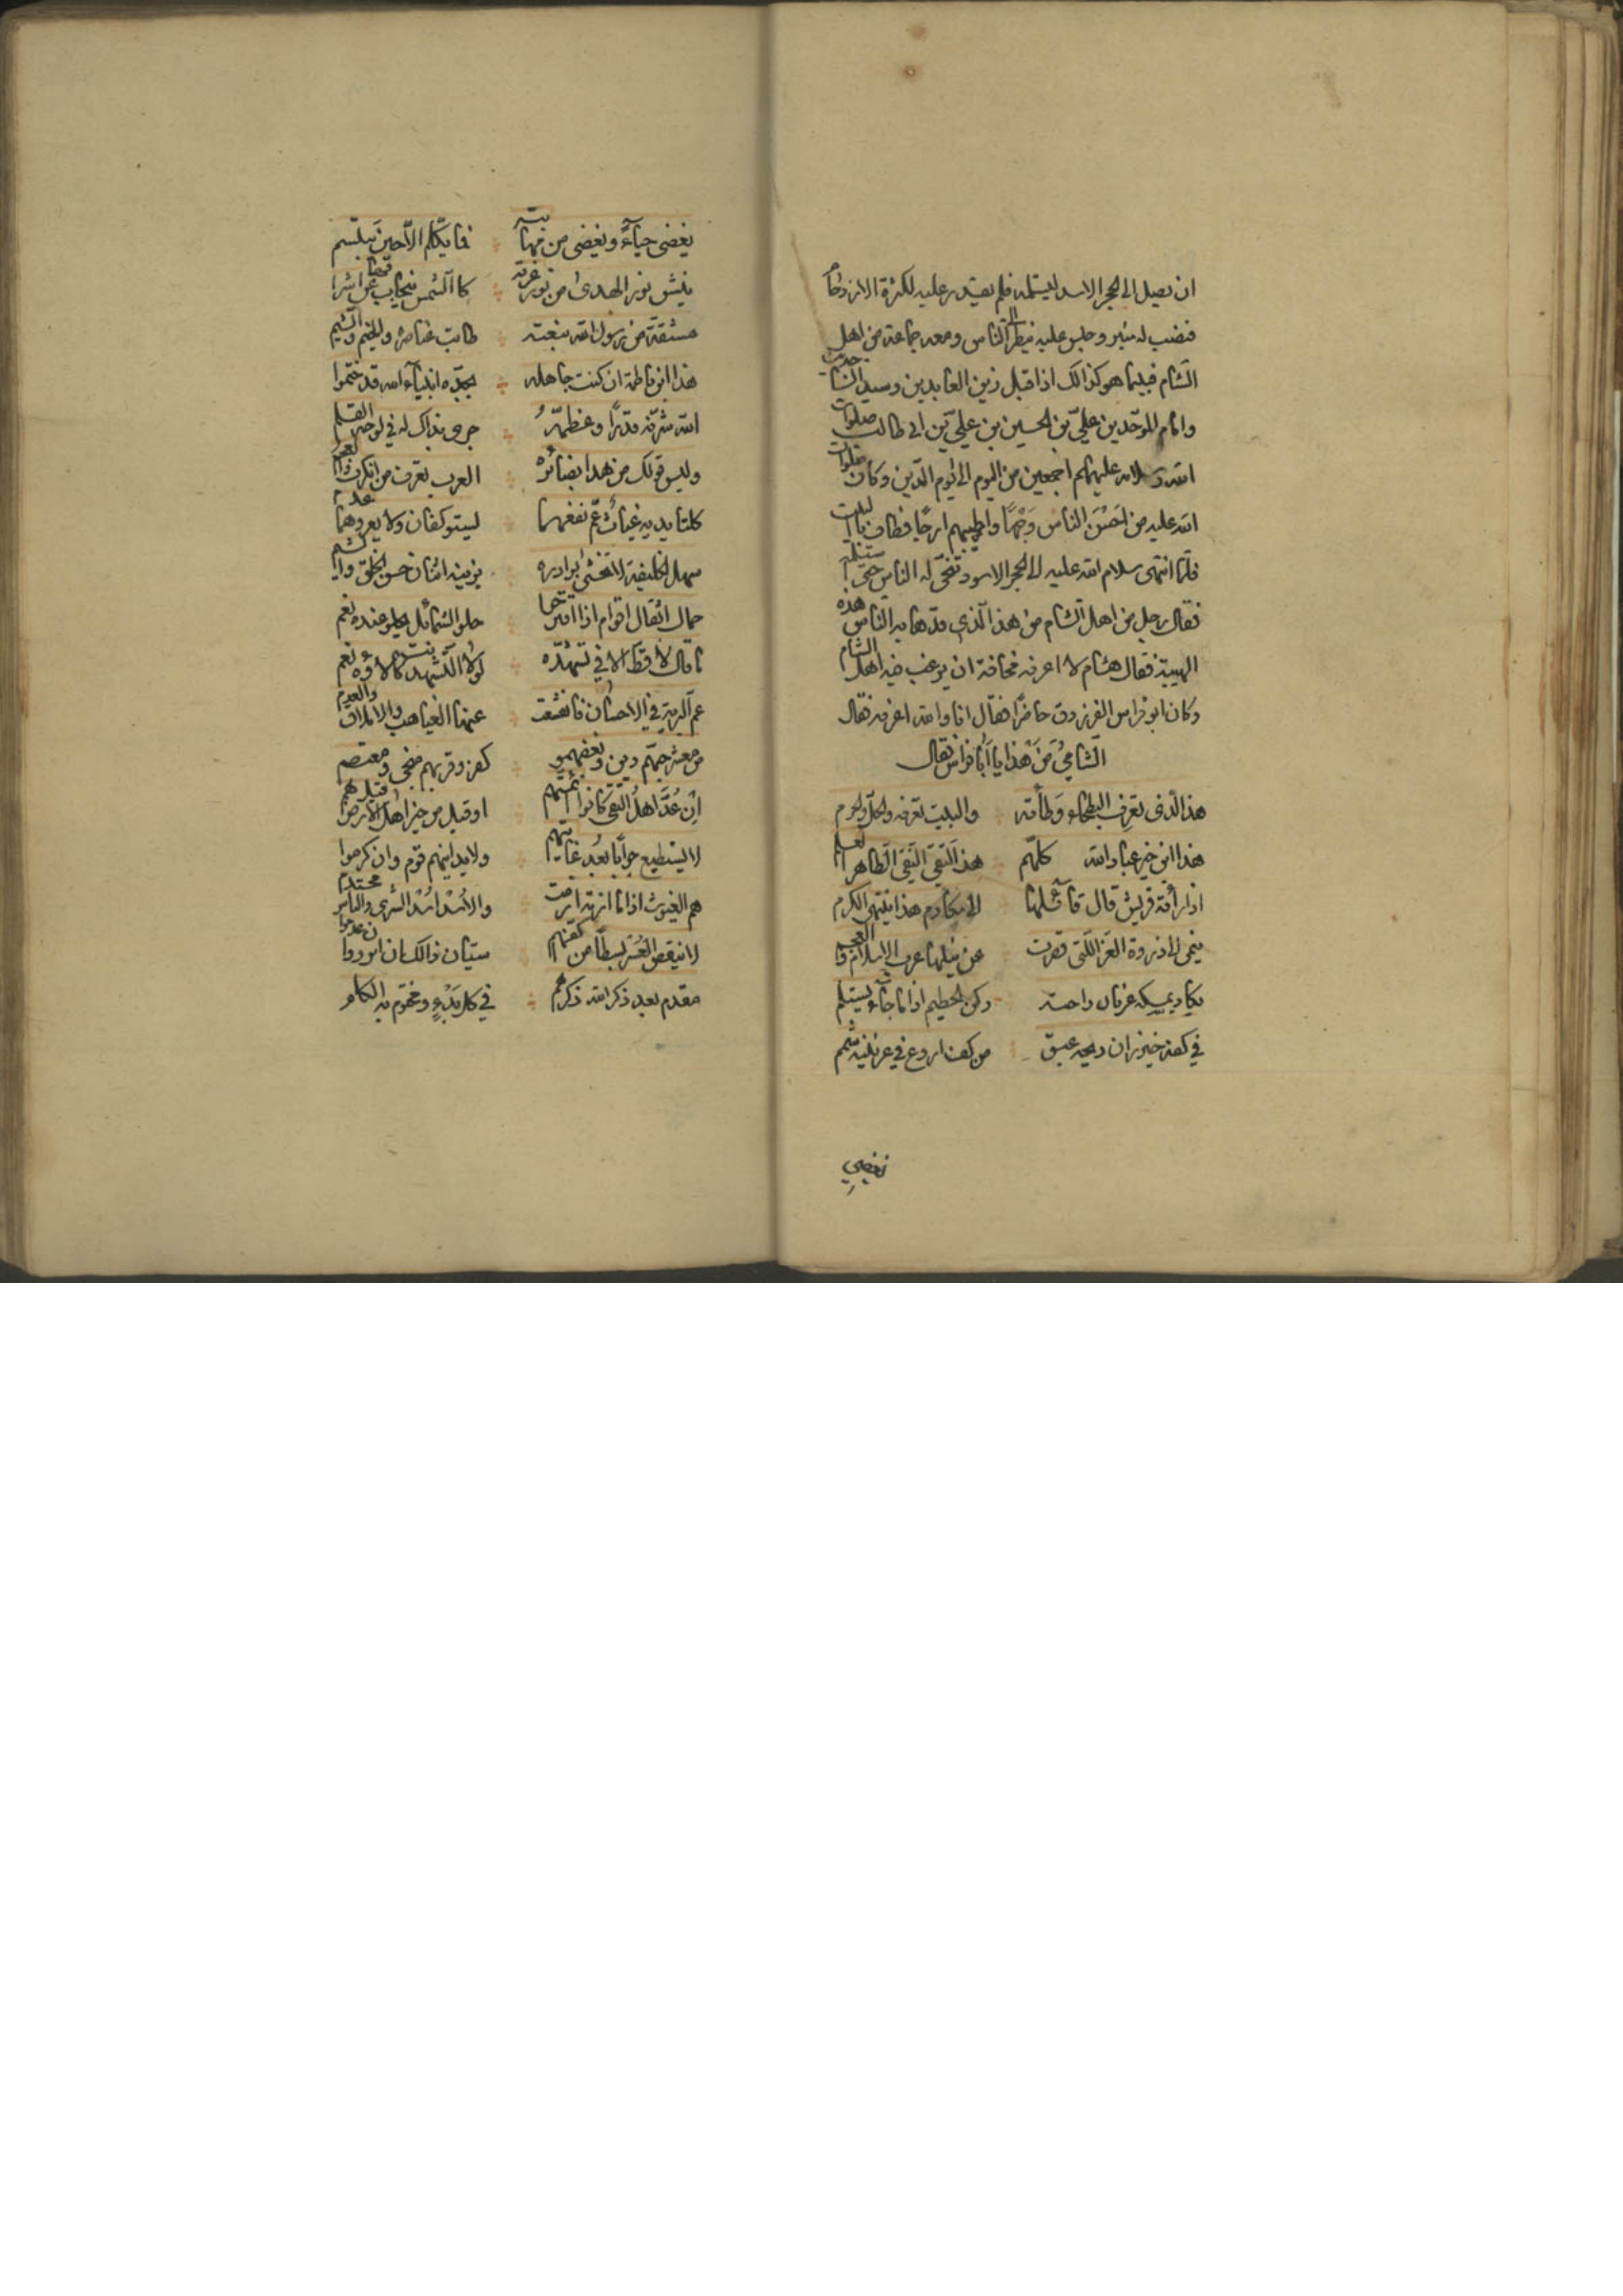 ان يصل الى الحجر الاسد ليستلمه فلم يقتدر عليه لكثرة الازدحام
فنصب له منبر وجلس عليه ينظر الى الناس ومعه جماعة من اهل
الشام فبينما هو كذالك اذا قبل زين العابدين وسيد الساجدين
وامام الموحدين عليّ بن الحسين بن عليّ بن ابي طالب صلوات
الله وسلامه عليهم اجمعين من اليوم الى يوم الدين وكان صلوات
الله عليه من احْسَن الناس وَجْهًا واطيبهم ارجًا فطاف باالبيت
فلما انتهى سلام الله عليه الى الحجر الاسود تنحّى له الناس حتى استلمه
فقال رجل من اهل الشام من هذا الّذي قد هابه الناس هذه
الهيبة فقال هشام لا اعرفه مخافة ان يرغب فيه اهل الشام
وكان ابو فراس الفرزدق حاضرًا فقال انا والله اعرفه فقال
الشاميُّ مَنْ هذا يا اَبا فراس فقال
هذا الّذى تعرف البطحاء وَطأته والبيت تعرفه والحلّ والحرم
هذا ابن خير عباد الله كلهّم هذا التقى النقى الطاهر العلم
اذا رأته قريش قال قائلها الى مكارم هذا ينتهى الكرم
ينمى الى ذروة العزّ الّتى قصرت عن نيلها عرب الاسلام والعجم
يكاد يمسكه عرفان راحته ركن الحطيم اذا ما جاء يستلم
في كفه خيزران ريحه عبق من كف اروع في عرنينه شمم
يغضي
يغضى حياءً ويغضى من مهابته فما يكلم الاّ حين يبتسم
ينشق نور الهدى من نور غرته كاالشمس ينجاب عن اشراقها
مشتقة من رسول الله نبعته طابت عناصره والخيم والشيم
هذا ابن فاطمة ان كنت جاهله بجدّه انبياء الله قد ختموا
الله شرّفه قدرًا وعظّمهُ جرى بذاك له في لوحه القلم
وليس قولك من هذا بضائره العرب تعرف من انكرت والعجم
كلتا يديه غياث عمّ نفعهما يستوكفان ولا يعروهما عدم
سهل الخليقة لا تخشى بوادره يزينه اثنان حسن الخلق والشيم
حمال اثقال اقوام اذا اقترحوا حلو الشمائل يحلو عنده نعم
ما قال لا قط الا في تشهدّه لولا التشهد كانت لاؤه نعم
عم البرية في الاحسان فانقشعت عنها الغياهب والاملاق والعدم
من معشر حبهّم دين وبغضهمو كفر وقربهم منجى ومعتصم
اِنْ عُدَّ اهلُ التقى كانوا ائمتهم او قيل من خير اهل الارض قيل هم
لا يستطيع جوابًا بُعد غايتهم ولا يدانيهم قوم وان كرموا
هم الغيوث اذا ما ازمة ازمت والاُسْد اُسْد الشرى والباس محتدم
لا ينقص العُسْر بسطًا من اكفهم سيّان ذالك ان اثروا وان عدموا
مقدم بعد ذكر الله ذكرهم في كل بَدْءٍ ومختوم به الكلم